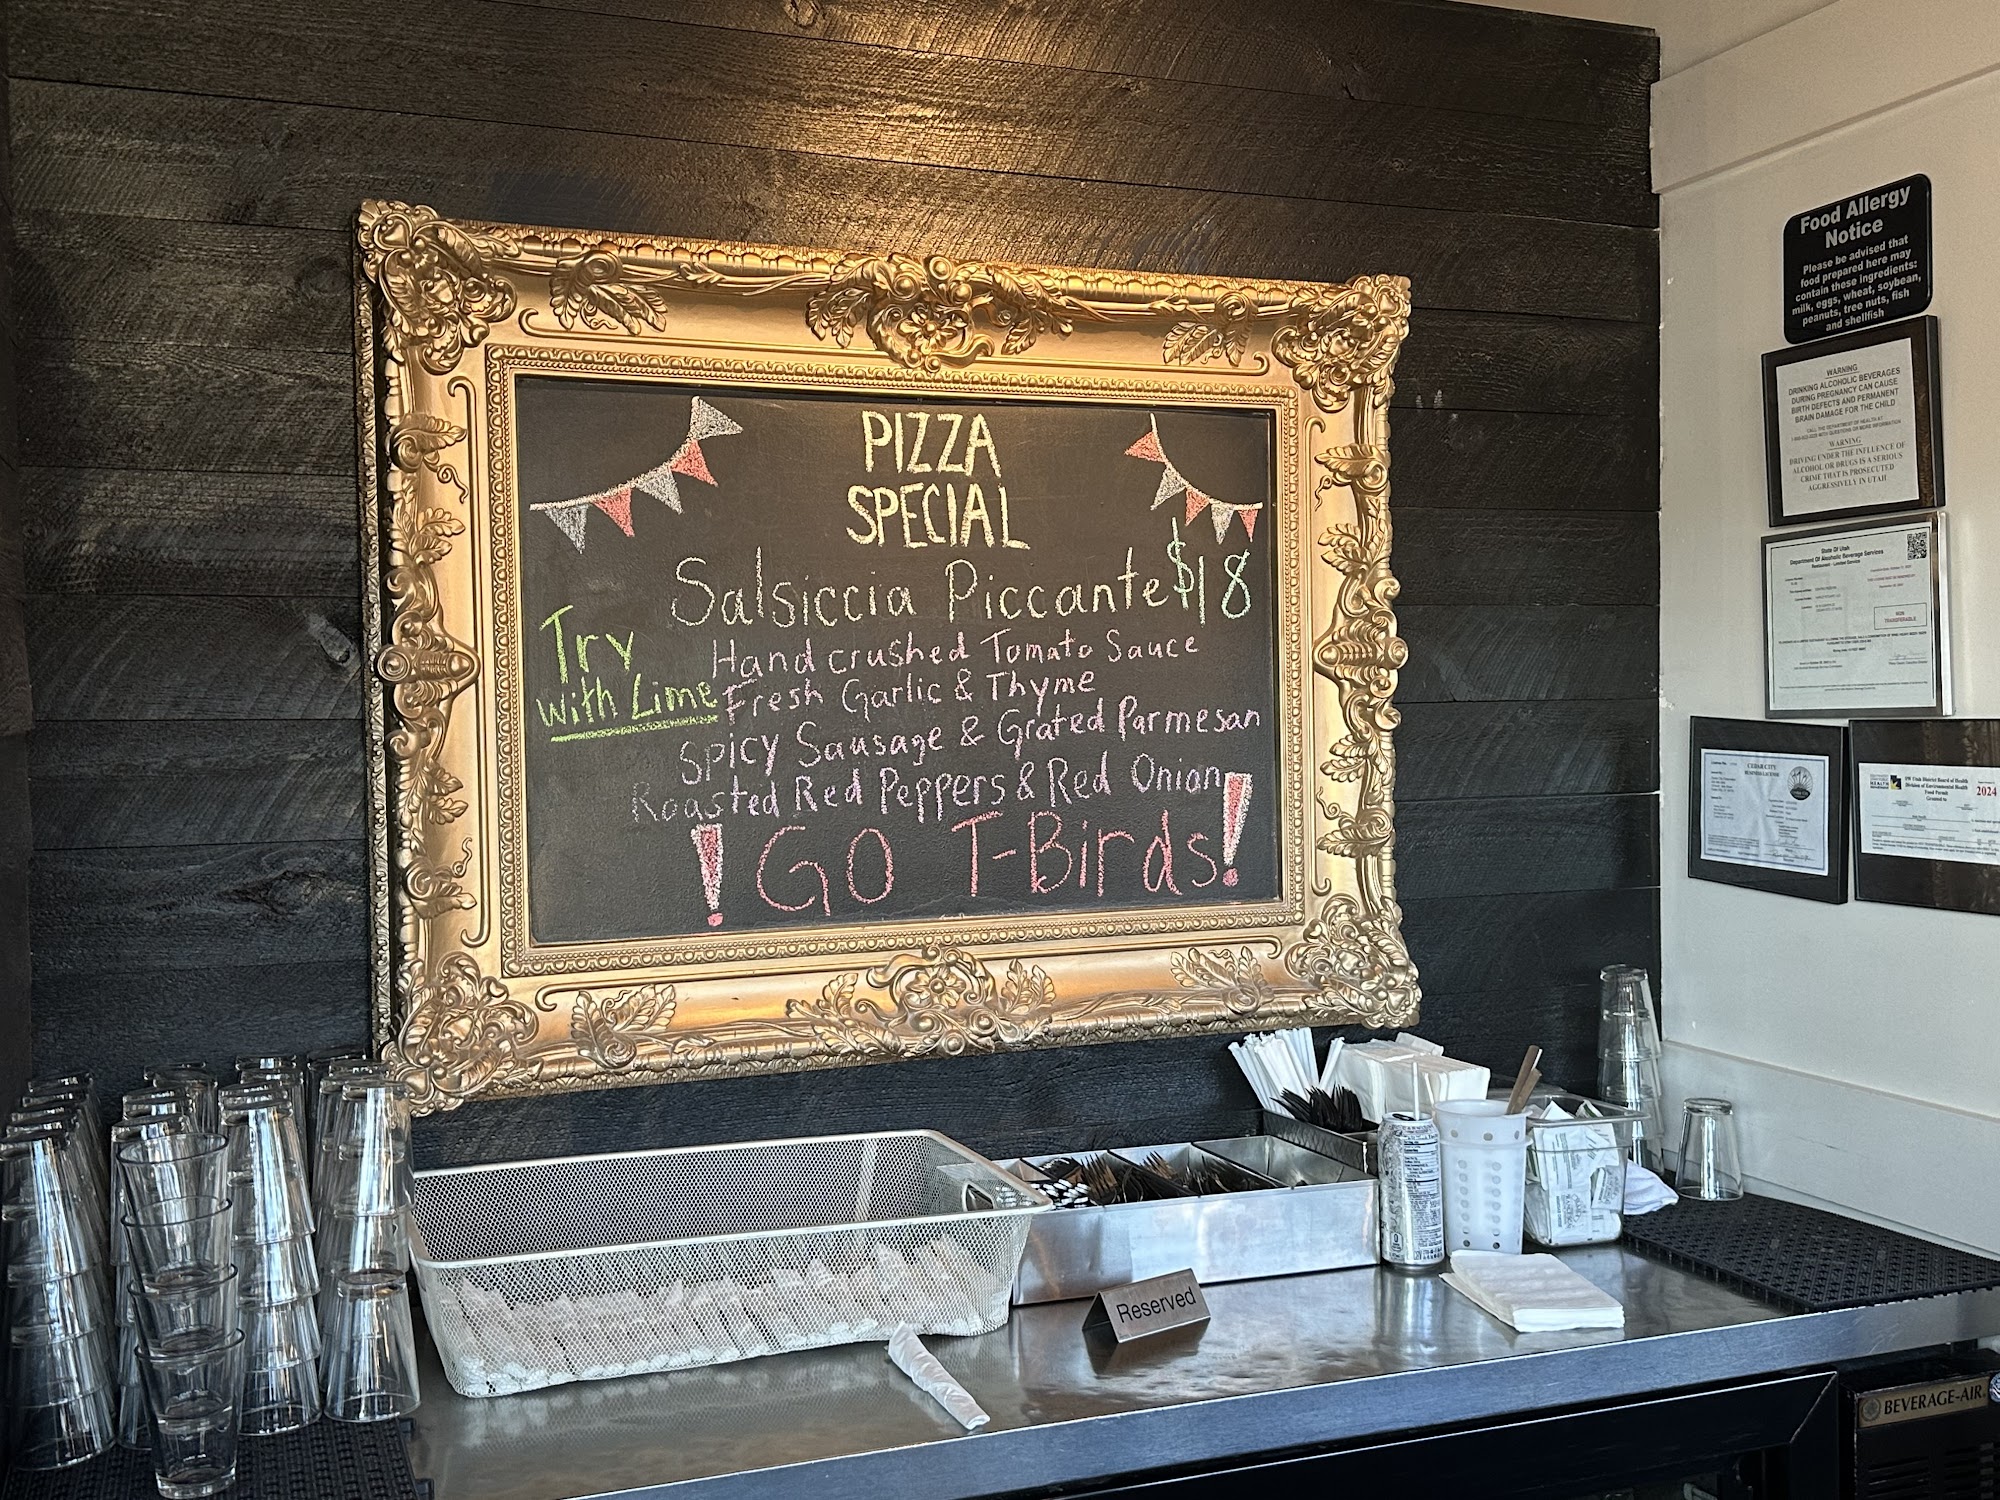 PIZZA
SPECIAL
Salsiccia Piccante $18
Try
with Lime
Hand crushed Tomato Sauce
Fresh Garlic & Thyme
Spicy Sausage & Grated Parmesan
Roasted Red Peppers & Red Onion
! GO T-Birds!
Food Allergy
Notice
Please be advised that
food prepared here may
contain these ingredients:
milk, eggs, wheat, soybean,
peanuts, tree nuts, fish
and shellfish
WARNING
DRINKING ALCOHOLIC BEVERAGES
DURING PREGNANCY CAN CAUSE
BIRTH DEFECTS AND PERMANENT
BRAIN DAMAGE FOR THE CHILD
WARNING
DRIVING UNDER THE INFLUENCE OF
ALCOHOL OR DRUGS IS A SERIOUS
CRIME THAT IS PROSECUTED
AGGRESSIVELY IN UTAH
State Of Utah
Department Of Alcoholic Beverage Services
Restaurant - Limited Service
CEDAR CITY
BUSINESS LICENSE
SW Utah District Board of Health
Division of Environmental Health
Food Permit
Granted to
2024
Reserved
BEVERAGE-AIR